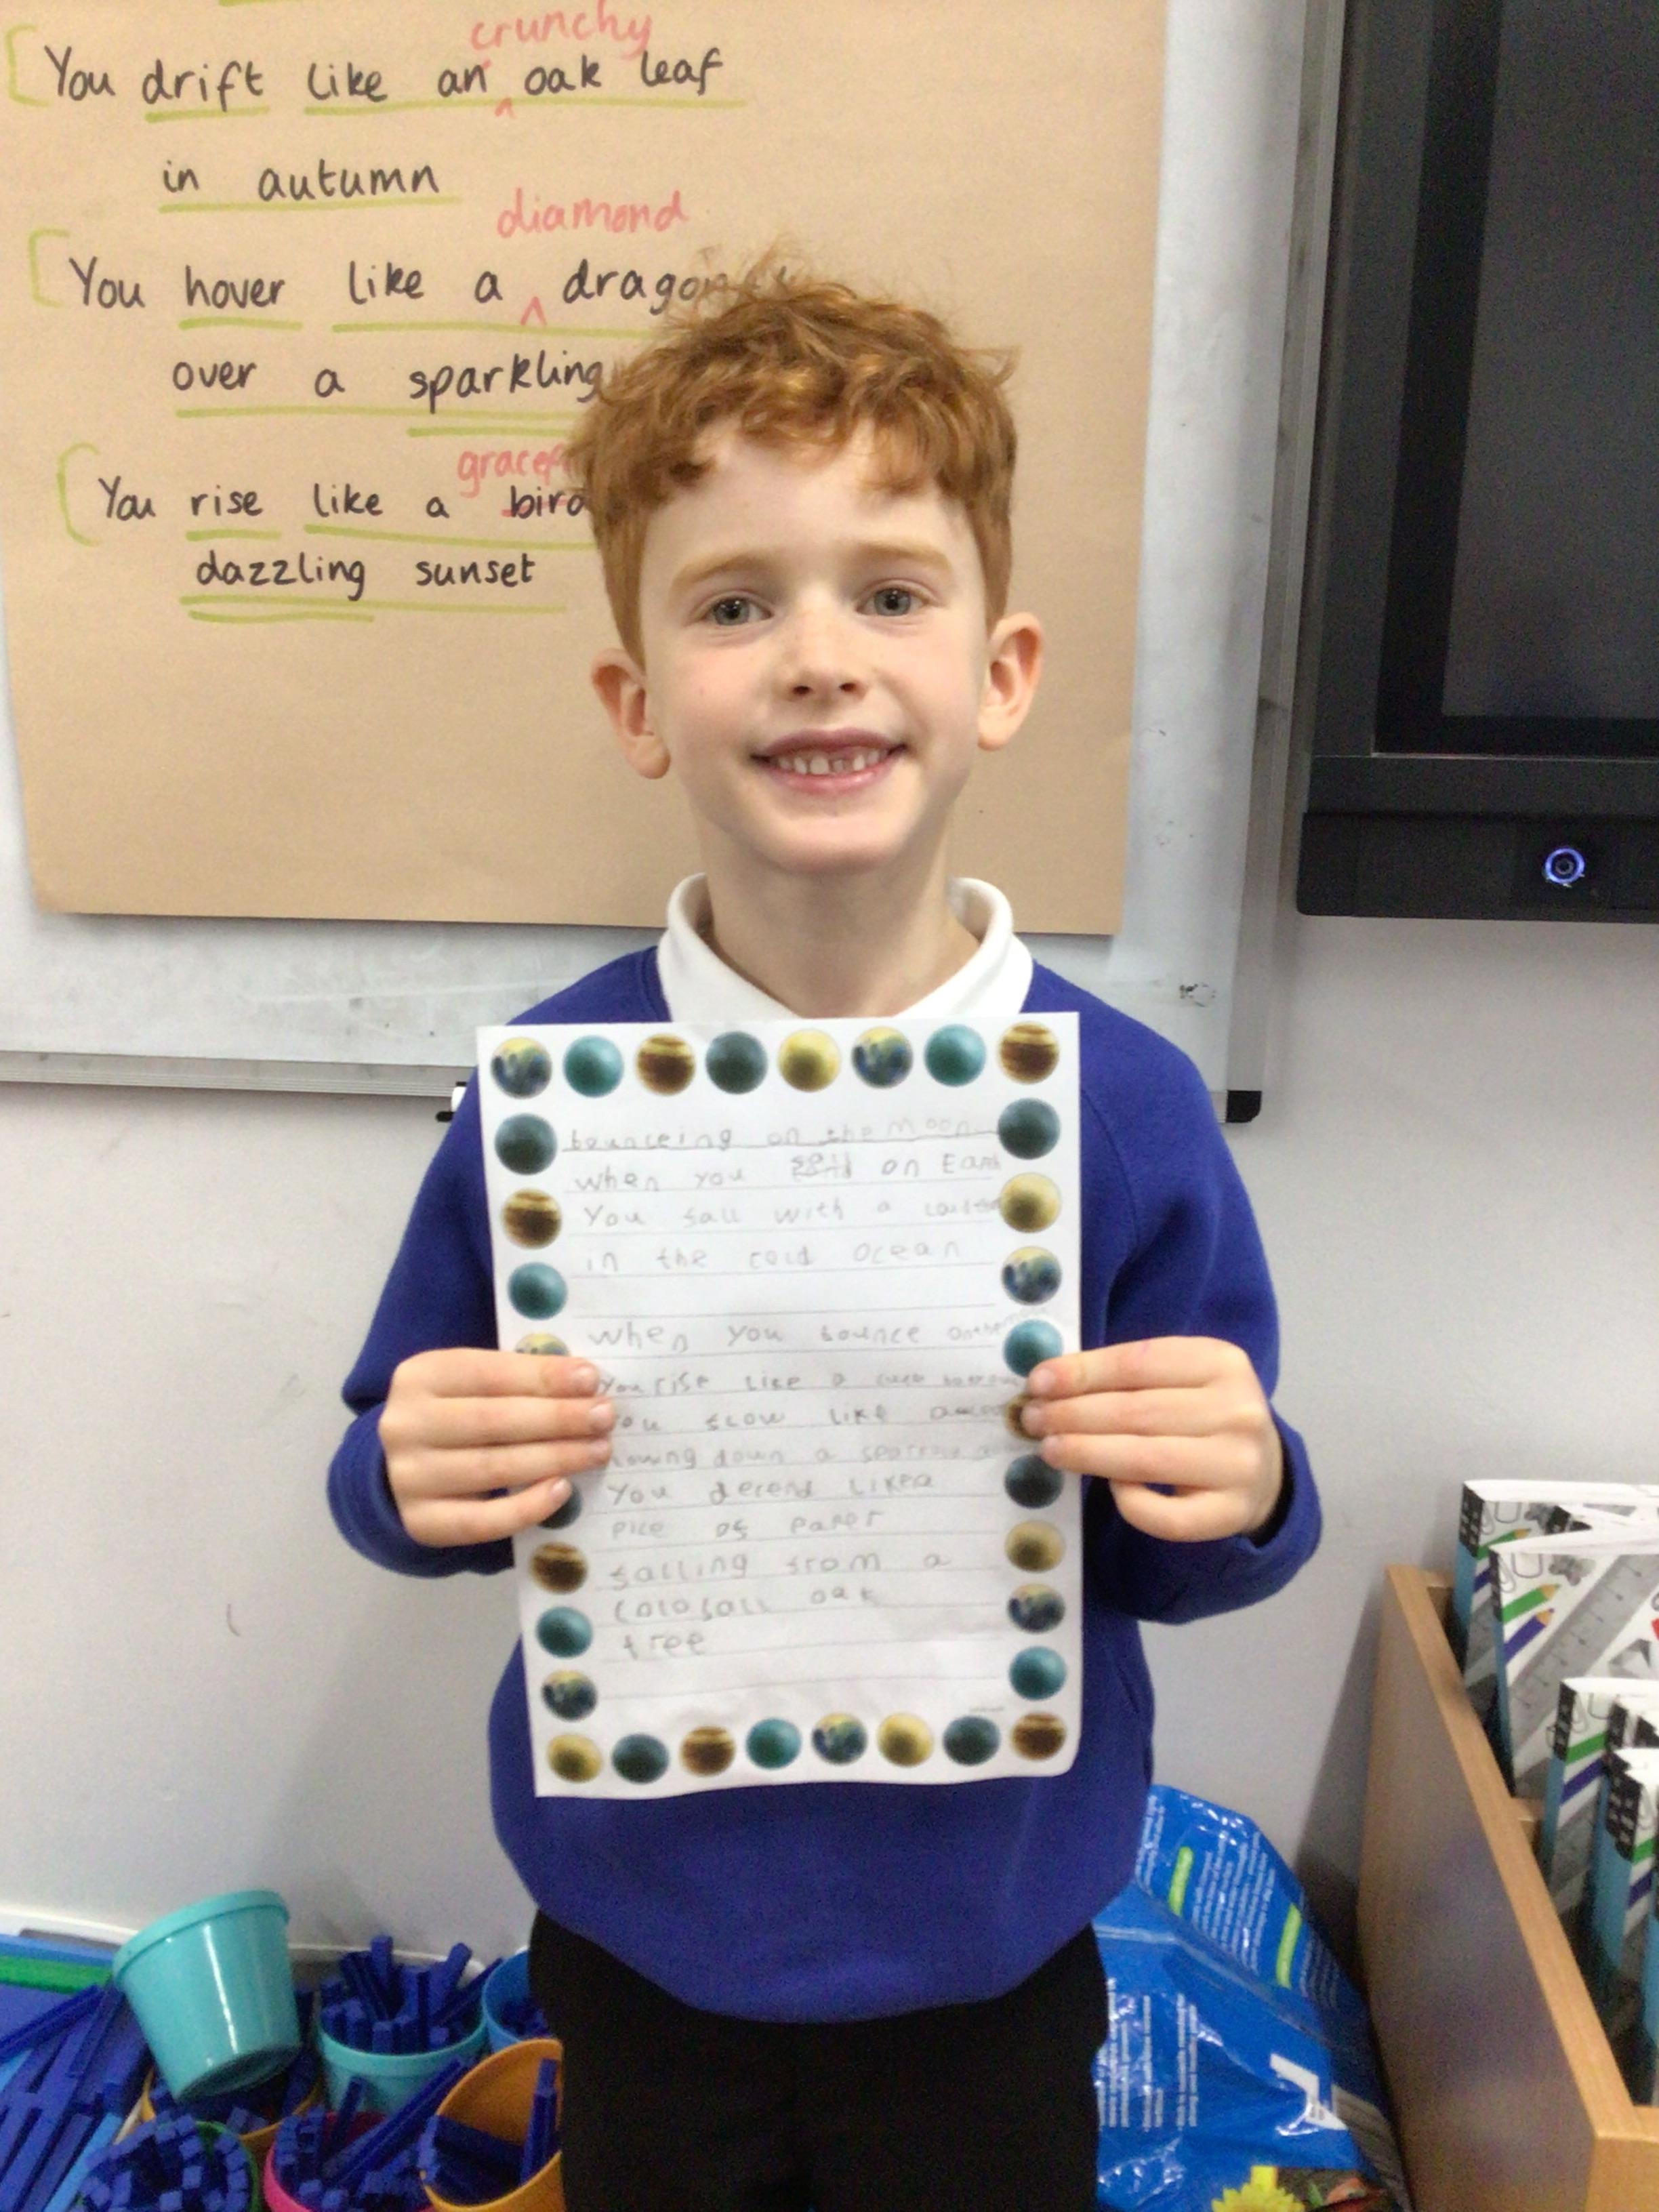 crunchy
You drift like an ^ oak leaf
in autumn
diamond
You hover like a ^
over a sparkling
You rise like a
dazzling sunset
bounceing on the Moon
when you on Earth
You fall with a
in the cold ocean
when you bounce on the
You rise like a
you slow like
down a
You decend like a
pice of paper
falling from a
colosall oak
tree